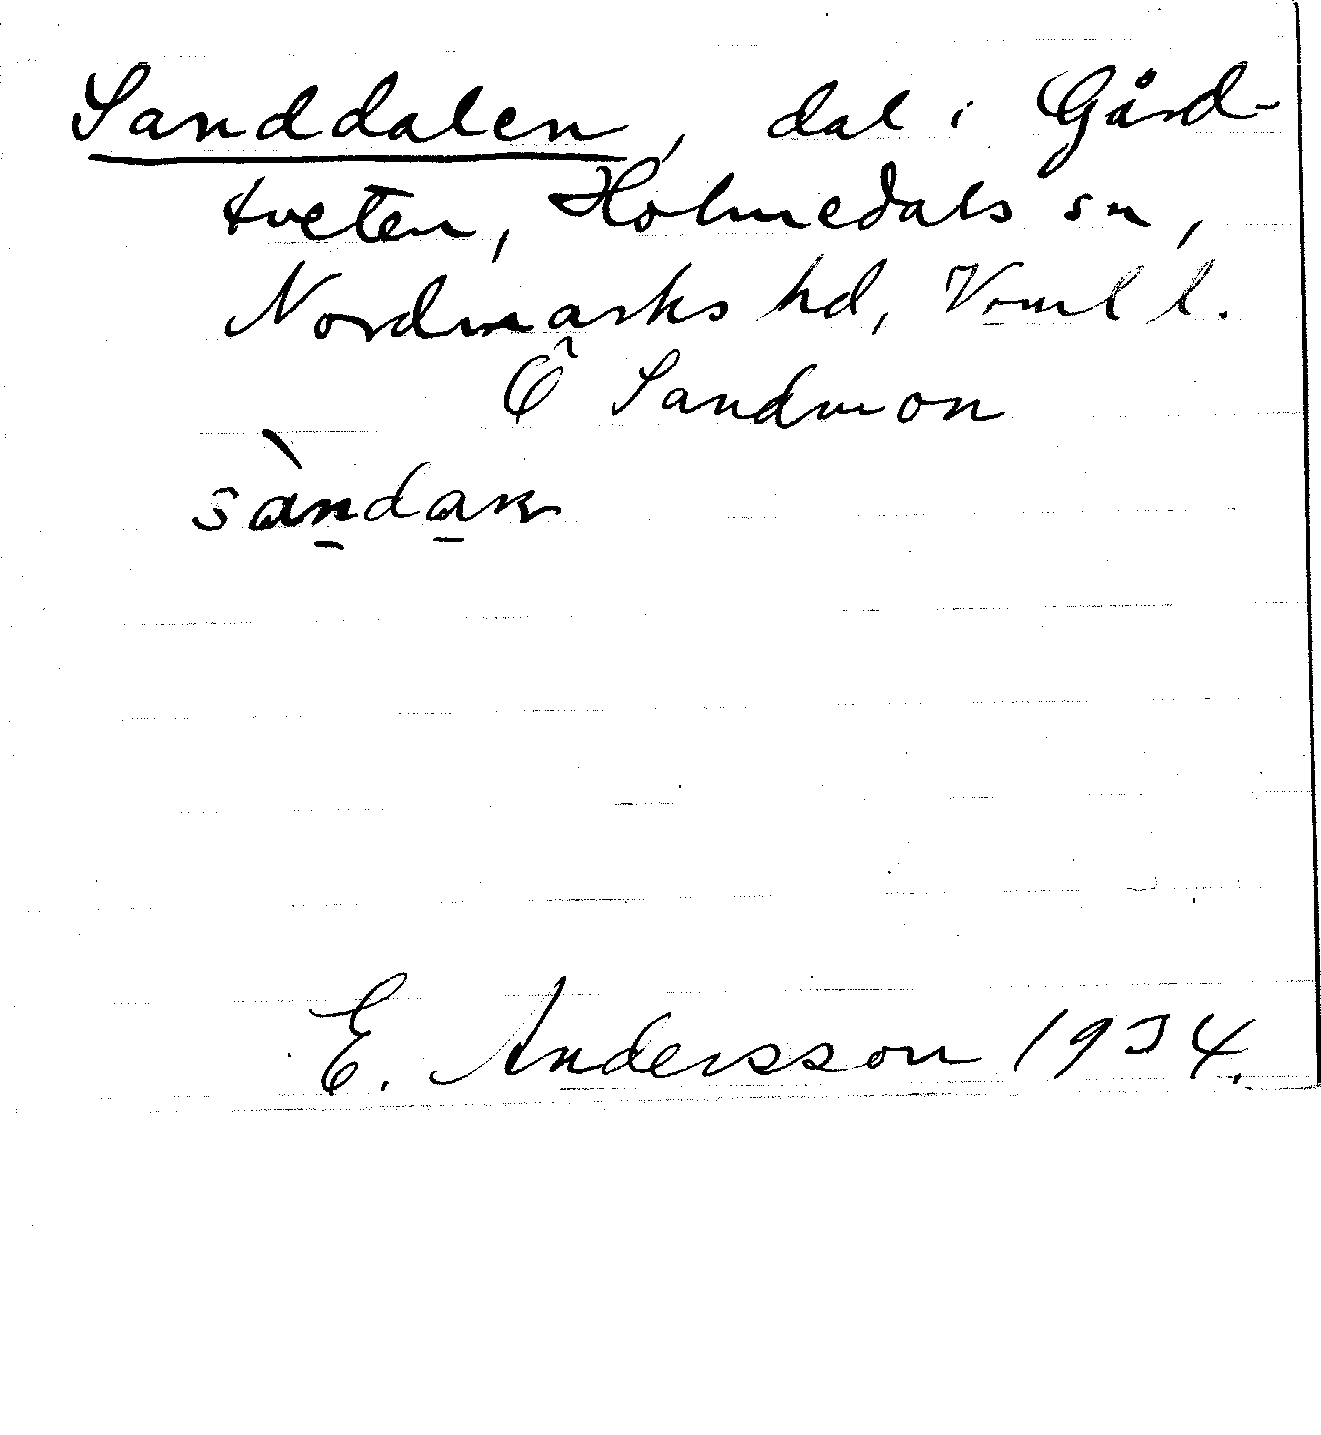 Sanddalen, dal i Gård-
tveten, Holmedals sn,
Nordmarks hd, Vrml l.
Ö Sandmon
sàndaɳ
E. Andersson 1934.